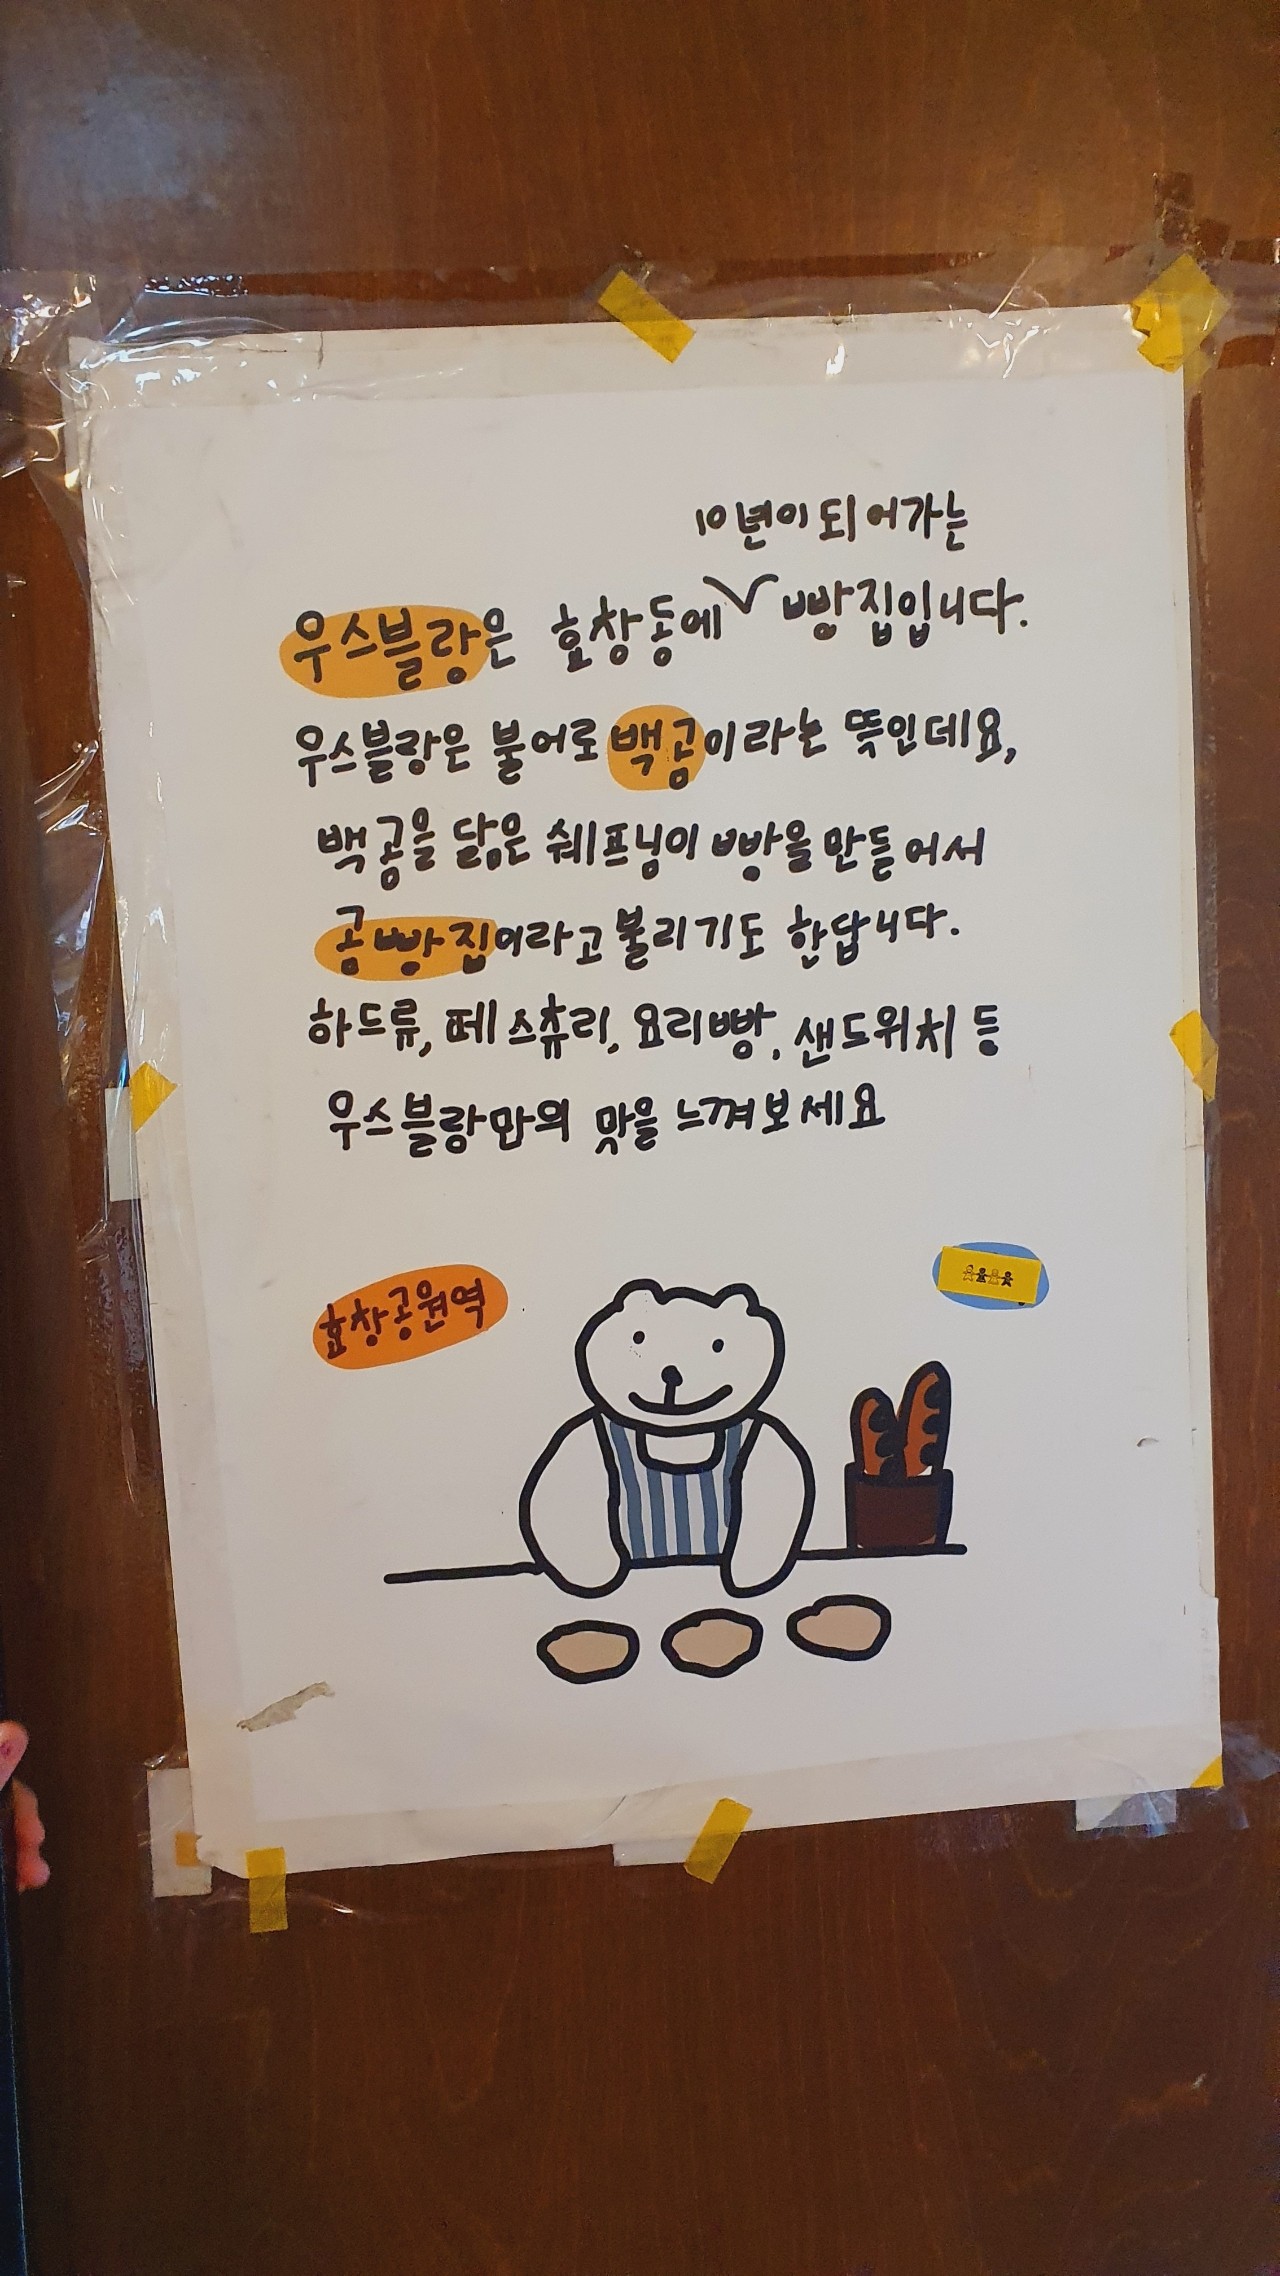 10년이 되어가는
우스블랑은 효창동에 빵집입니다.
우스블랑은 불어로 백곰이라는 뜻인데요,
백곰을 닮은 쉐프님이 빵을 만들어서
곰빵집이라고 불리기도 한답니다.
하드류, 페스츄리, 요리빵, 샌드위치 등
우스블랑만의 맛을 느껴보세요
효창공원역